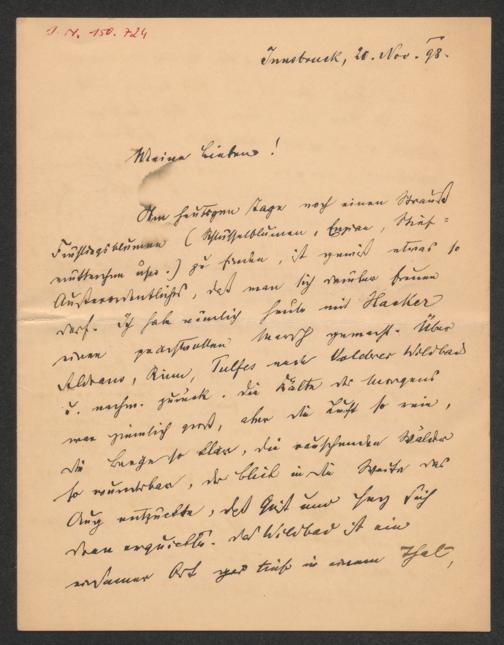 J. N. 150.724
Innsbruck, 20. Nov. 98.
Meine Lieben!
Am heutigen Tage noch einen Strauß
Frühlingsblumen (Schlüsselblumen, Enzian, Stief=
mütterchen usw.) zu finden, ist gewiß etwas so
Außerordentliches, daß man sich darüber freuen
darf. Ich habe nämlich heute mit Hacker
einen prachtvollen Marsch gemacht. Über
Aldrans, Rinn, Tulfes nach Volderer Wildbad
u. nachm. zurück. Die Kälte des Morgens
war ziemlich groß, aber die Luft so rein,
die Berge so klar, die rauschenden Wälder
so wunderbar, der Blick in die Weite das
Aug entzückte, daß Geist und Herz sich
daran erquickte. Das Wildbad ist ein
einsamer Ort gar tief in einem Thal,